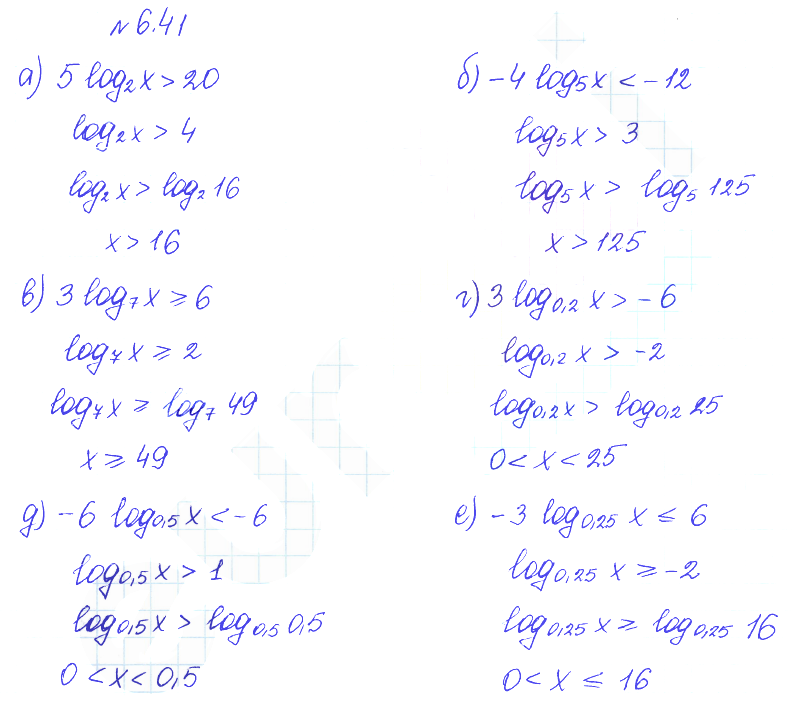 № 6.41
а) 5 log₂x > 20
log₂x > 4
log₂x > log₂ 16
x > 16
б) -4 log₅x < -12
log₅x > 3
log₅x > log₅ 125
x > 125
в) 3 log₇x ≥ 6
log₇x ≥ 2
log₇x ≥ log₇ 49
x ≥ 49
г) 3 log₀,₂ x > -6
log₀,₂ x > -2
log₀,₂x > log₀,₂ 25
0 < x < 25
д) -6 log₀,₅x < -6
log₀,₅x > 1
log₀,₅x > log₀,₅ 0,5
0 < x < 0,5
е) -3 log₀,₂₅ x ≤ 6
log₀,₂₅ x ≥ -2
log₀,₂₅ x ≥ log₀,₂₅ 16
0 < x ≤ 16